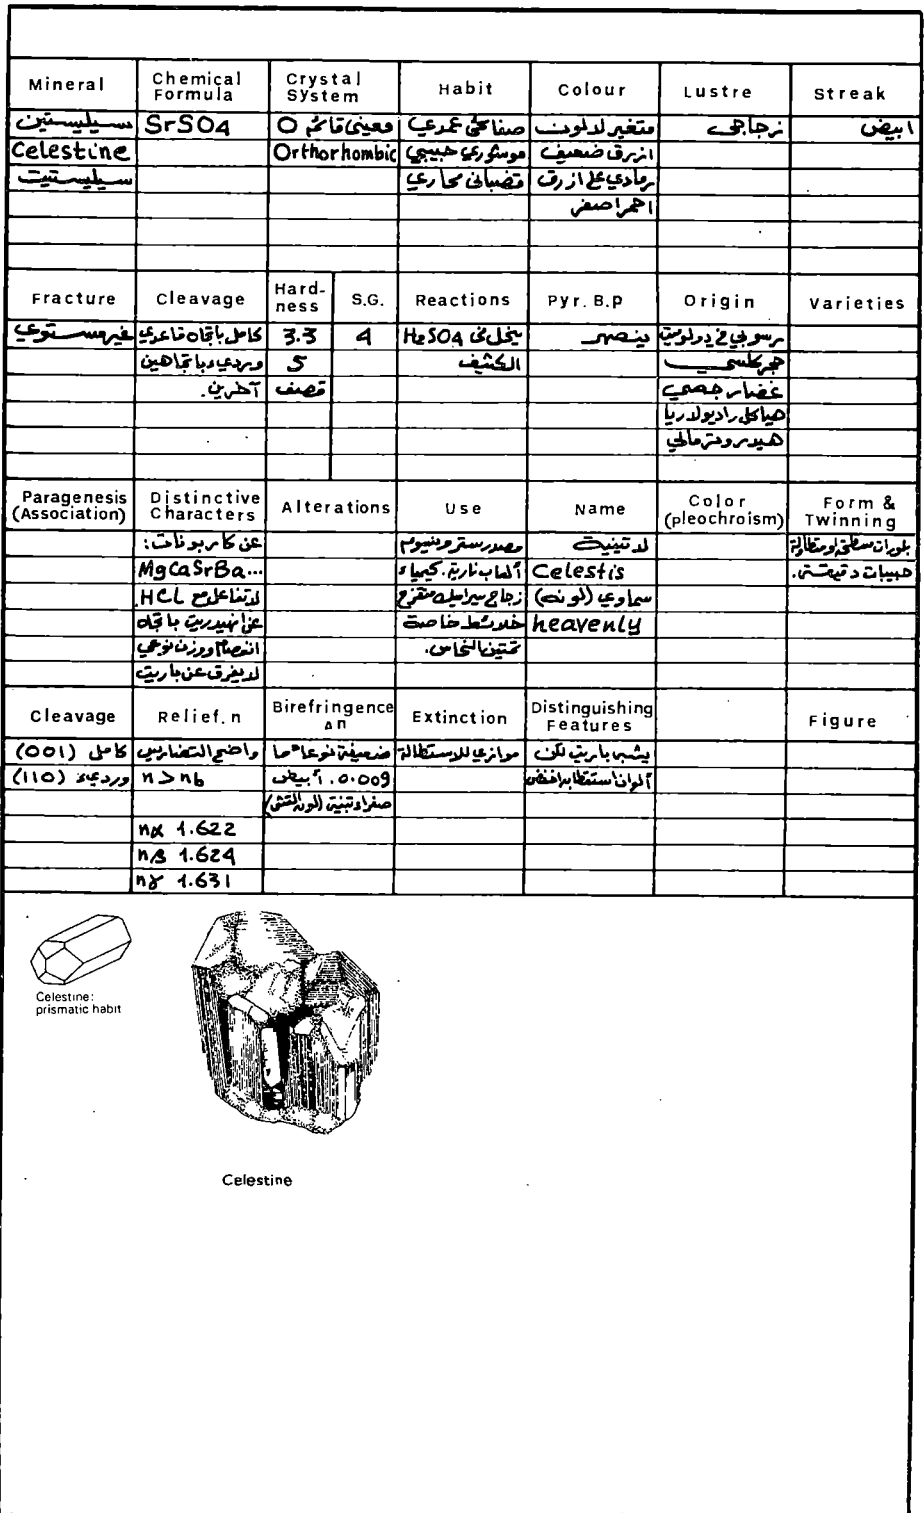 Mineral	Chemical Formula	Crystal System	Habit	Colour	Lustre	Streak
سيليستين	SrSO4	معيني قائم O	صفائحي عمدي	متغير لا لون	زجاجي	ابيض
Celestine		Orthorhombic	موشوري حبيبي	ازرق ضعيف
سيليستيت			قضباني محاري	رمادي على ازرق
احمر اصفر
Fracture	Cleavage	Hardness	S.G.	Reactions	Pyr. B.p	Origin	Varieties
غير مستوي	كامل باتجاه قاعدي	3.3	4	ينحل في H2SO4	ينصهر	رسوبي في دولوميت
ورديء وباتجاهين	5		الكثيف		حجر كلسي
آخرين.	قصف			غضار جصي
هياكل راديولاريا
هيدروترمالي
Paragenesis (Association)	Distinctive Characters	Alterations	Use	Name	Color (pleochroism)	Form & Twinning
عن كاربونات:		مصدر سترونسيوم	لاتينية		بلورات سطحية او متطاولة
MgCaSrBa...		ألعاب نارية. كيمياء	Celestis		حبيبات دقيقة.
لا تفاعل مع HCL.		زجاج سيراميك متقزح	سماوي (لونه)
عن انهيدريت باتجاه		خلائط خاصة	heavenly
انفصام ووزن نوعي		النحاس.
لا يفرق عن باريت
Cleavage	Relief. n	Birefringence Δn	Extinction	Distinguishing Features		Figure
كامل (001)	واضح التضاريس	ضعيفة نوعا ما	موازي للاستطالة	يشبه باريت لكن
رديء (110)	n > nb	0.009. أبيض		ألوان استقطابه اخفض
صفراء تبنية
nα 1.622
nβ 1.624
nγ 1.631
Celestine:
prismatic habit
Celestine